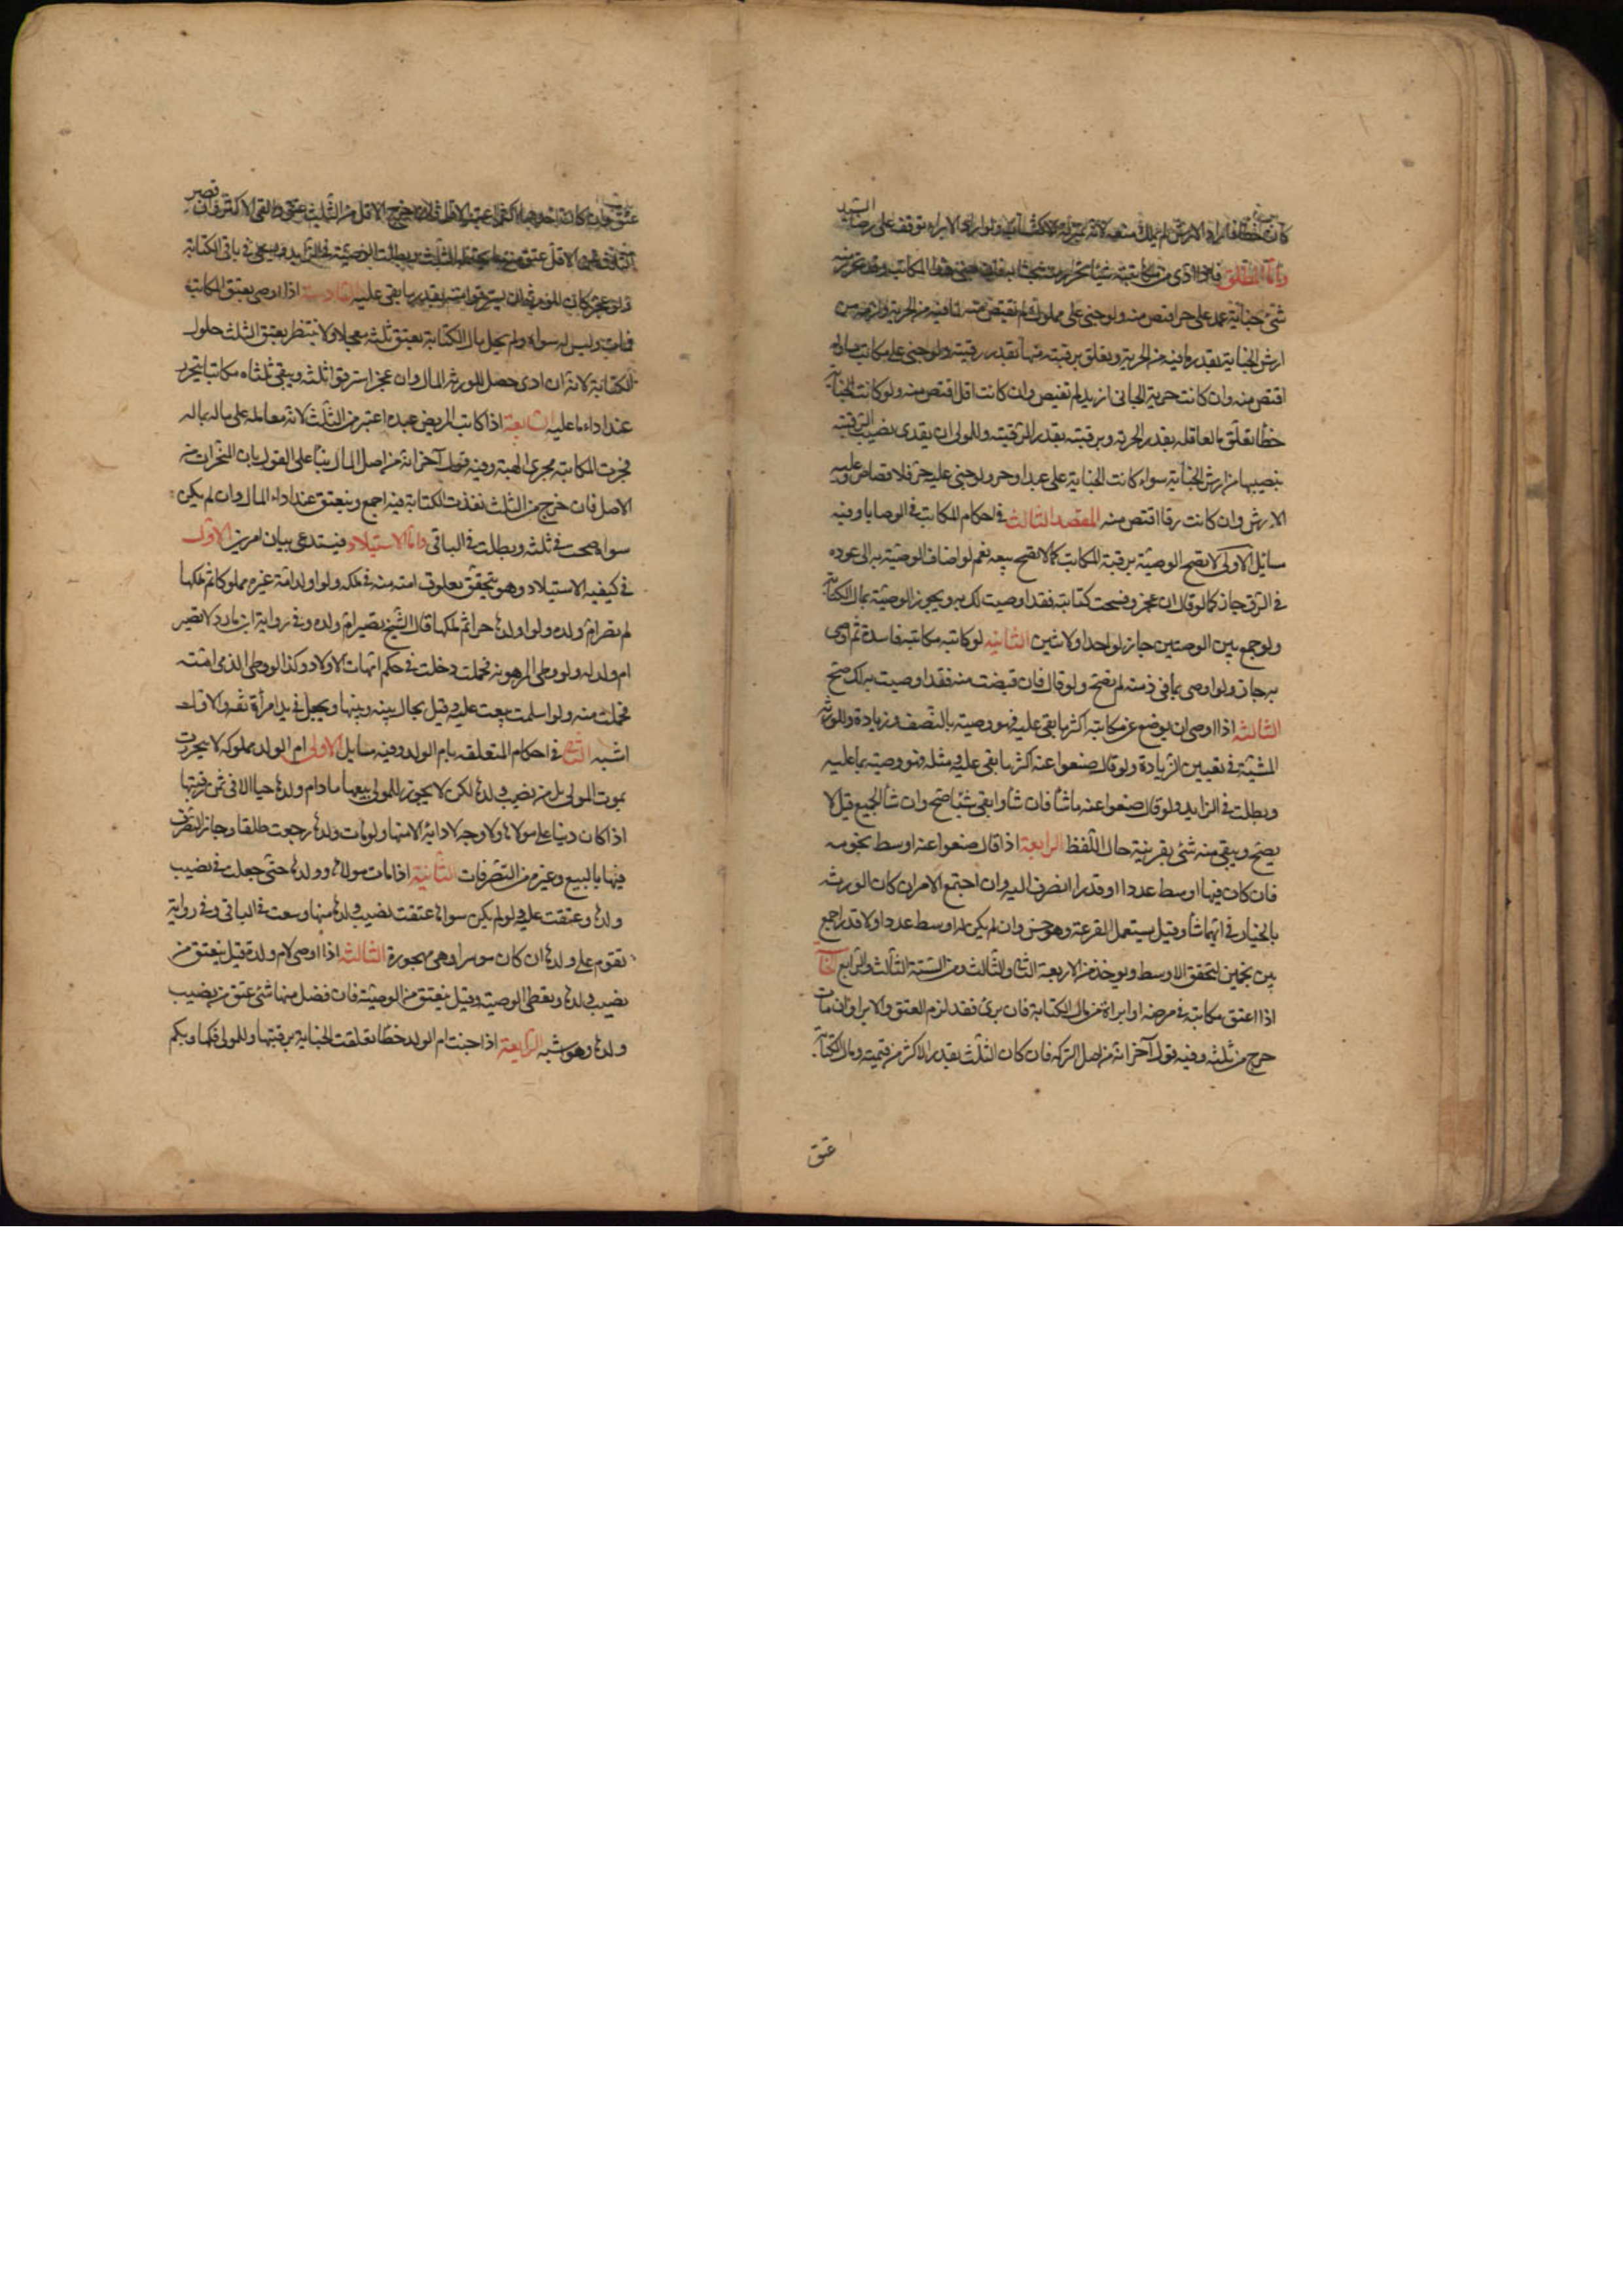 كان خطأ فاراد الارش لم يملك منعه لانه بمنزلة الاكتساب ولو اراد الابراء توقف على رضاء السيد
واما المطلق فاذا ادى من مكاتبته شيئا تحرر منه بحسابه فان جنى هذا المكاتب وقد تحرر منه
شئ جناية عمدا على حر اقتص منه ولو جنى على مملوك لم يقتص منه لما فيه من الحرية ولزمه من
ارش الجناية بقدر ما فيه من الحرية وتعلق برقبته منها بقدر رقيته ولو جنى على مكاتب مساو له
اقتص منه وان كانت حرية الجانى ازيد لم يقتص وان كانت اقل اقتص منه ولو كانت الجناية
خطأ تعلق بالعاقله بقدر الحرية وبرقبته بقدر الرقية وللمولى ان يفدى نصيب الرقية
بنصيبها من ارش الجناية سواء كانت الجناية على عبد او حر ولو جنى عليه حر فلا قصاص وعليه
الارش وان كانت رقا اقتص منه المقصد الثالث فى احكام المكاتب فى الوصايا وفيه
مسائل الاولى لا تصح الوصية برقبة المكاتب كما لا تصح بيعه نعم لو اضاف الوصية به الى عوده
فى الرق جاز كما لو قال ان عجز وفسخت كتابته فقد اوصيت لك به ويجوز الوصية بمال الكتابة
ولو جمع بين الوصيتين جاز لواحد او لاثنين الثانيه لو كاتبه مكاتبه فاسدة ثم اوصى
به جاز ولو اوصى بما فى ذمته لم تصح ولو قال فان قبضت منه فقد اوصيت به لك صح
الثالثه اذا اوصى ان يوضع عن مكاتبه اكثر ما بقى عليه فهو وصية بالنصف وزيادة وللورثه
المشية فى تعيين الزيادة ولو قال ضعوا عنه اكثر ما بقى عليه ومثله فهو وصية بما عليه
وبطلت فى الزايد ولو قال ضعوا عنه ما شأ فان شأ وابقى شيئا صح وان شأ الجميع قيل لا
يصح ويبقى منه شئ بقرينة حال اللفظ الرابعة اذا قال ضعوا عنه اوسط نجومه
فان كان فيها اوسط عددا او قدرا انصرف اليه وان اجتمع الامران كان الورثه
بالخيار فى ايهما شأو وقيل يستعمل القرعة وهو حسن وان لم يكن له اوسط عددا ولا قدرا جمع
بين نجمين لتحقق الاوسط ويوخذ من الاربعة الثانى والثالث ومن الستة الثالث والرابع الخامسة
اذا اعتق مكاتبه فى مرضه او ابراه من مال الكتابة فان برئ فقد لزم العتق والابرا وان مات
خرج من ثلثه وفيه قول آخر انه من اصل التركه فان كان الثلث بقدر الاكثر من قيمته ومال الكتابة
عتق
عتق وان كان احدهما اكثر اعتبر الاقل فان خرج الاقل من الثلث عتق والغى الاكثر وان قصر
الثلث عن الاقل عتق منه ما يحتمله الثلث وبطلت الوصية فى الزايد ويسعى فى باقى الكتابة
ولو عجز كان للورثة ان يسترقوا منه بقدر ما بقى عليه السادسة اذا اوصى بعتق المكاتب
فمات وليس له سواه ولم يحل مال الكتابة يعتق ثلثه معجلا ولا ينتظر بعتق الثلث حلول
الكتابة لانه ان ادى حصل للورثة المال وان عجز استرقوا ثلثه ويبقى ثلثاه مكاتبا يتحرر
عند اداء ما عليه السابعة اذا كاتب المريض عبده اعتبر من الثلث لانه معاملة على ماله بماله
فجرت المكاتبه مجرى الهبة وفيه قول آخر انه من اصل المال بنأ على القول بان المنجزات من
الاصل فان خرج من الثلث نفذت الكتابة فيه اجمع وينعتق عند اداء المال وان لم يكن
سواه صحت فى ثلثه وبطلت فى الباقى واما الاستيلاد فيستدعى بيان امرين الاول
فى كيفية الاستيلاد وهو يتحقق بعلوق امته منه فى ملكه ولو اولد امة غيره مملوكا ثم ملكها
لم تصر ام ولده ولو اولدها حرا ثم ملكها قال الشيخ تصير ام ولده وفى رواية ابن مارد لا تصير
ام ولد له ولو وطى المرهونه فحملت دخلت فى حكم امهات الاولاد وكذا لو وطى الذمى امته
فحملت منه ولو اسلمت بيعت عليه وقيل يحال بينه وبينها ويجعل فى يد امرأة ثقه والاول
اشبه الثانى فى احكام المتعلقه بام الولد وفيه مسايل الاولى ام الولد مملوكه لا يتحرر
بموت المولى بل من نصيب ولدها لكن لا يجوز للمولى بيعها ما دام ولدها حيا الا فى ثمن رقبتها
اذا كان دينا على مولاها ولا وجه لادائه الا منها ولو مات ولدها رجعت طلقا وجاز التصرف
فيها بالبيع وغيره من التصرفات الثانية اذا مات مولاها وولدها حتى جعلت فى نصيب
ولدها وعتقت عليه ولو لم يكن سواها عتقت نصيب ولدها منها وسعت فى الباقى وفى رواية
تقوم على ولدها ان كان موسرا وهى مهجورة الثالثه اذا اوصى لام ولده قيل ينعتق من
نصيب ولدها وتعطى الوصية وقيل ينعتق من الوصية فان فضل منها شئ عتق من نصيب
ولدها وهو اشبه الرابعة اذا جنت ام الولد خطأ تعلقت الجناية برقبتها وللمولى فكها وبكم